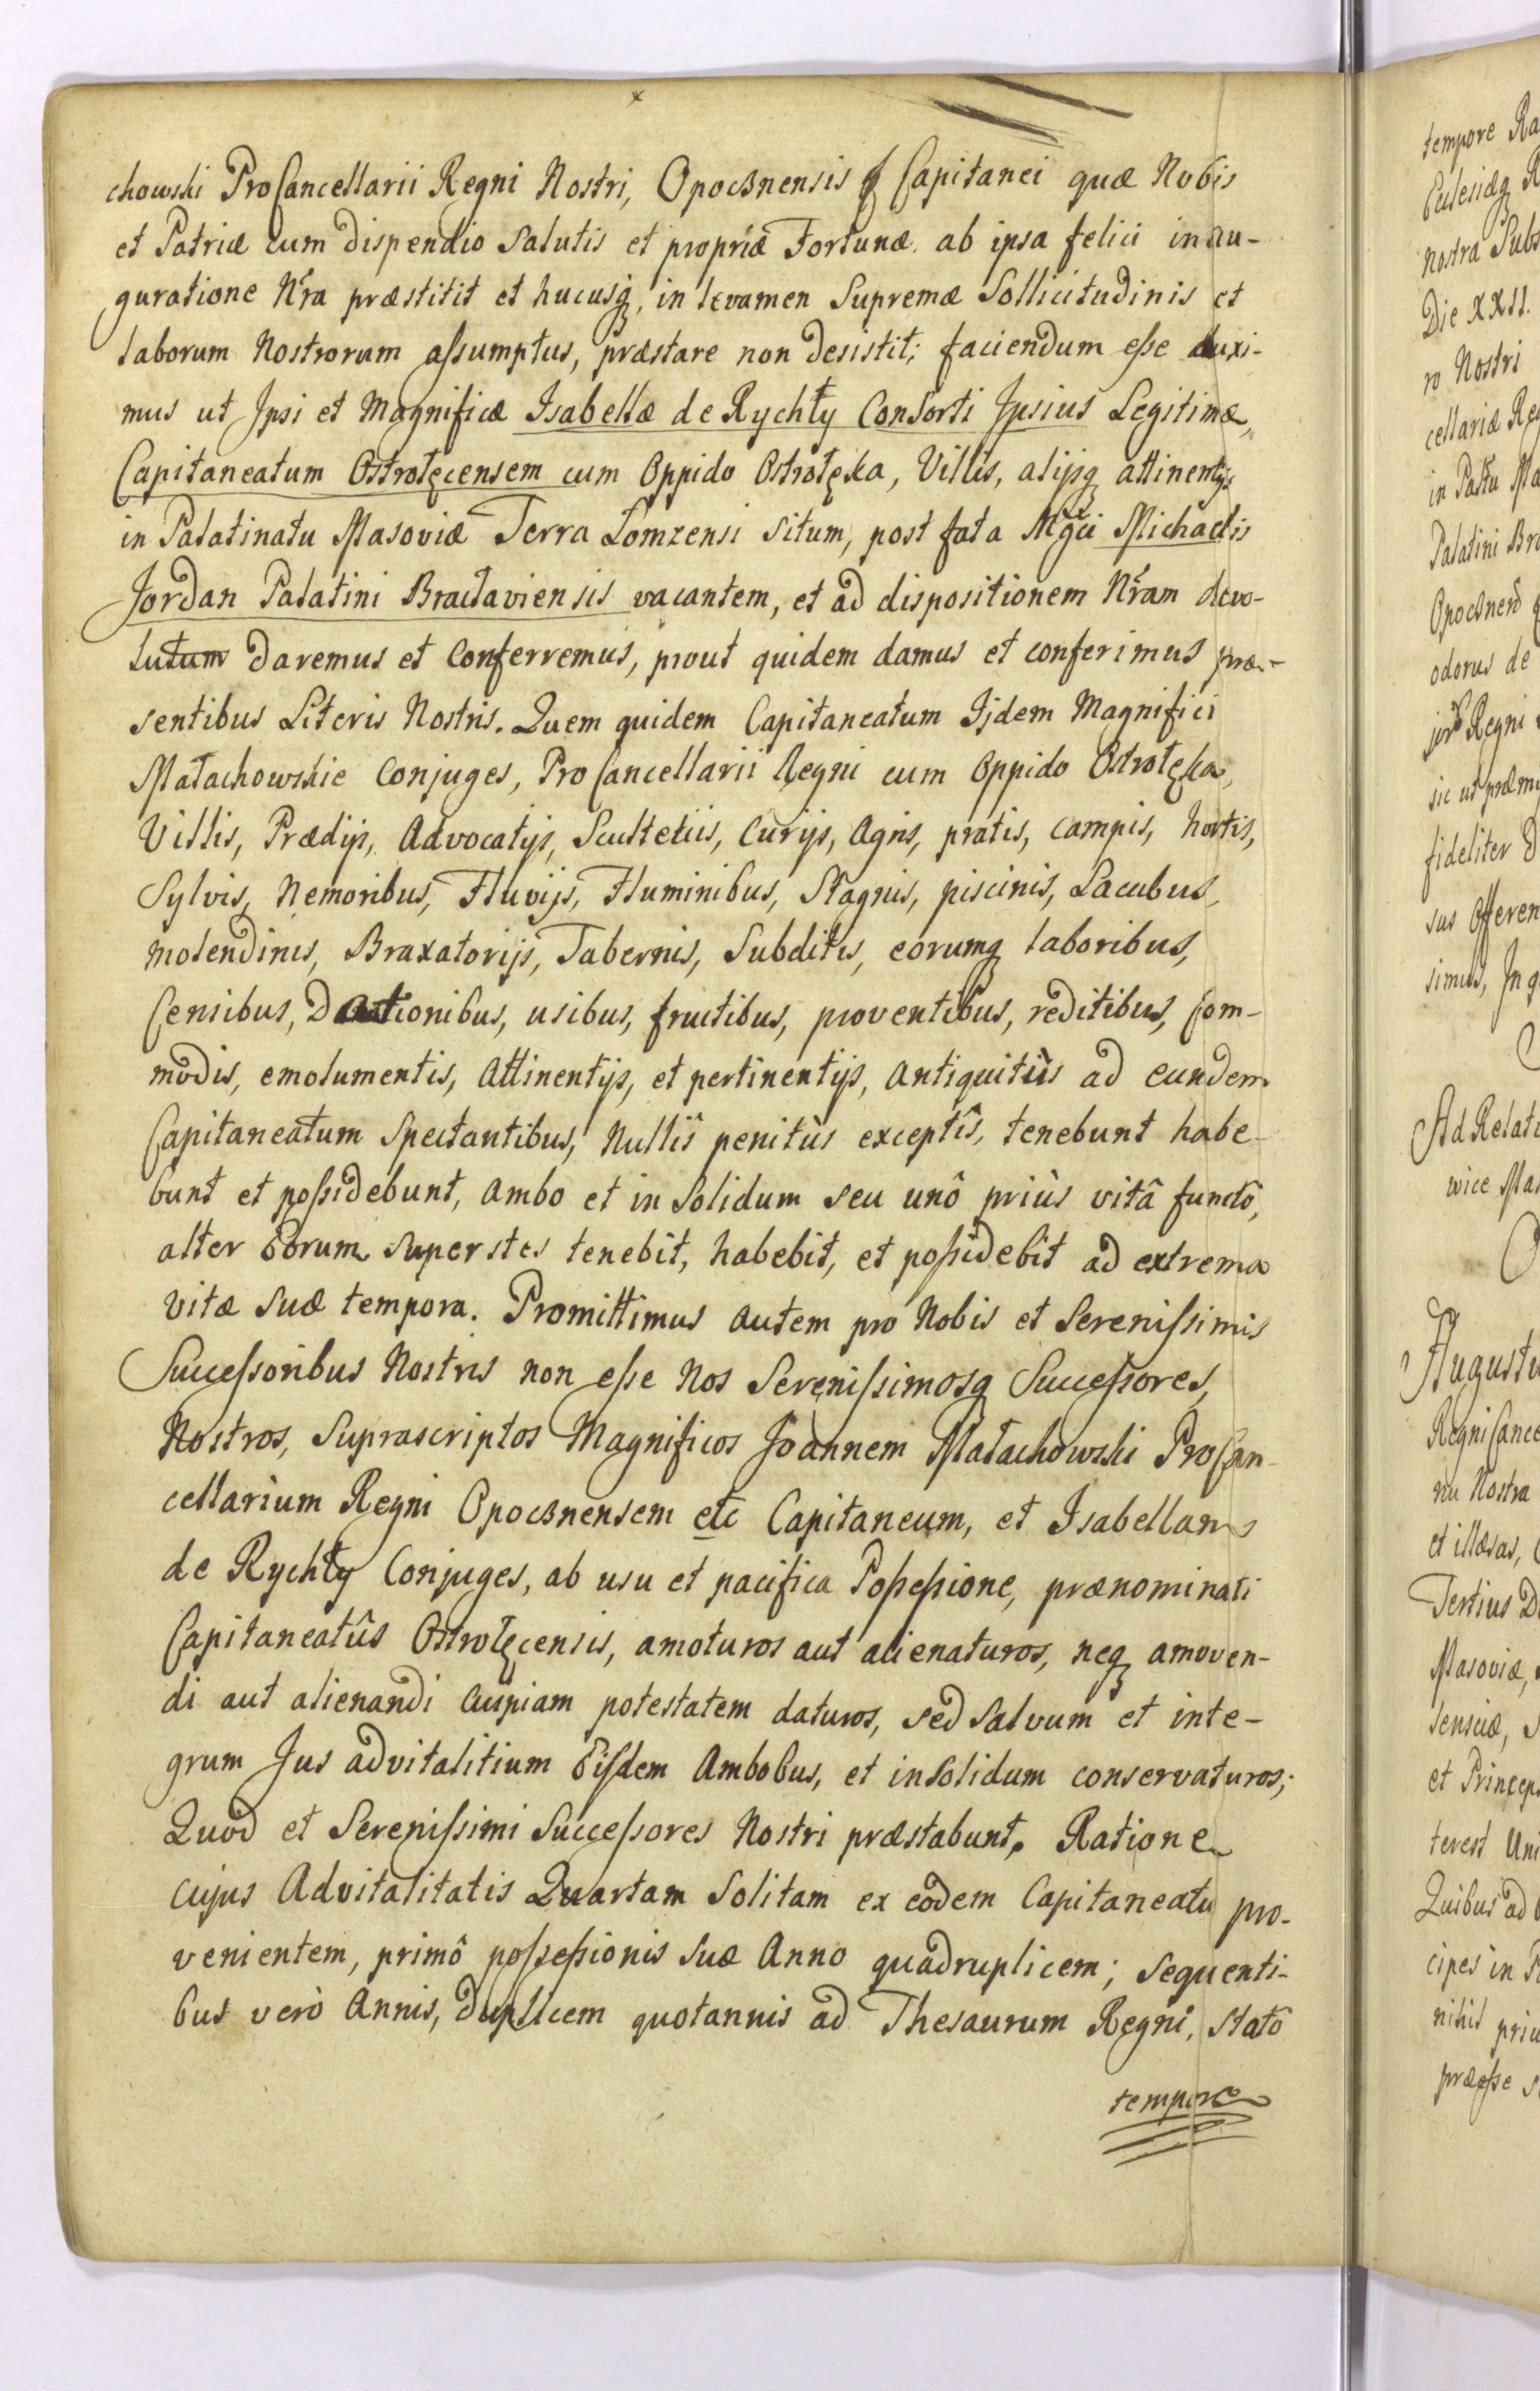 chowski ProCancellarii Regni Nostri, Opocznensis Capitanei quæ Nobis
et Patriæ cum dispendio Salutis et propriæ Fortunæ ab ipsa felici inau-
guratione Nra præstitit et hucusq, in levamen Supremæ Sollicitudinis et
laborum Nostrorum aſsumptus, præstare non desistit; faciendum eſse duxi-
mus ut Ipsi et Magnificæ Isabellæ de Rychły Consorti Ipsius Legitimæ,
Capitaneatum Ostrołęcensem cum Oppido Ostrołęka, Villis, alijsq attinentijs
in Palatinatu Masoviæ Terra Łomzensi situm, post fata Mgci Michaelis
Jordan Palatini Braclaviensis vacantem, et ad dispositionem Nram devo-
lutum daremus et Conferremus, prout quidem damus et conferimus præ-
sentibus Literis Nostris. Quem quidem Capitaneatum Ijdem Magnifici
Małachowskie Conjuges, ProCancellarii Regni cum Oppido Ostrołęka,
Villis, Prædijs, Advocatijs, Scultetiis, Curijs, Agris, pratis, campis, hortis,
Sylvis, Nemoribus, Fluvijs, Fluminibus, Stagnis, piscinis, Lacubus,
molendinis, Braxatorijs, Tabernis, Subditis, eorumq laboribus,
Censibus, Dationibus, usibus, fructibus, proventibus, reditibus, Com-
modis, emolumentis, Attinentijs, et pertinentijs, Antiquitùs ad eundem
Capitaneatum Spectantibus, Nullis penitùs exceptis, tenebunt habe-
bunt et poſsidebunt, Ambo et in Solidum seu unô priùs vitâ functô,
alter Eorum superstes tenebit, habebit, et poſsidebit ad extrema
vitæ suæ tempora. Promittimus autem pro Nobis et Sereniſsimis
Succeſsoribus Nostris non eſse Nos Sereniſsimosq Succeſsores,
Nostros, Suprascriptos Magnificos Joannem Małachowski ProCan-
cellarium Regni Opocznensem etc Capitaneum, et Isabellam
de Rychły Conjuges, ab usu et pacifica Poſseſsione, prænominati
Capitaneatûs Ostrołęcensis, amoturos aut alienaturos, neq amoven-
di aut alienandi Cuipiam potestatem daturos, sed Salvum et inte-
grum Jus advitalitium Eiſdem Ambobus, et in Solidum conservaturos;
Quod et Sereniſsimi Succeſsores Nostri præstabunt. Ratione
cujus Advitalitatis Quartam Solitam ex eodem Capitaneatu pro-
venientem, primô poſseſsionis suæ Anno quadruplicem; sequenti-
bus verò Annis, Duplicem quotannis ad Thesaurum Regni, Statô
tempore
tempore Ra
nostra Subs
Die XXII.
ro Nostri
cellariæ Reg
in Pałtu Ma
Palatini Bra
odorus de
Regni
sic ut præm
fideliter
sus Offeren
simus, In q
Ad Relati
wice Ma
Augustu
Regni Cance
nu Nostra
et illæsas,
Tertius D
Masoviæ,
et Princeps
terest Uni
Quibus ad
cipes in P
nihil priu
præeſse